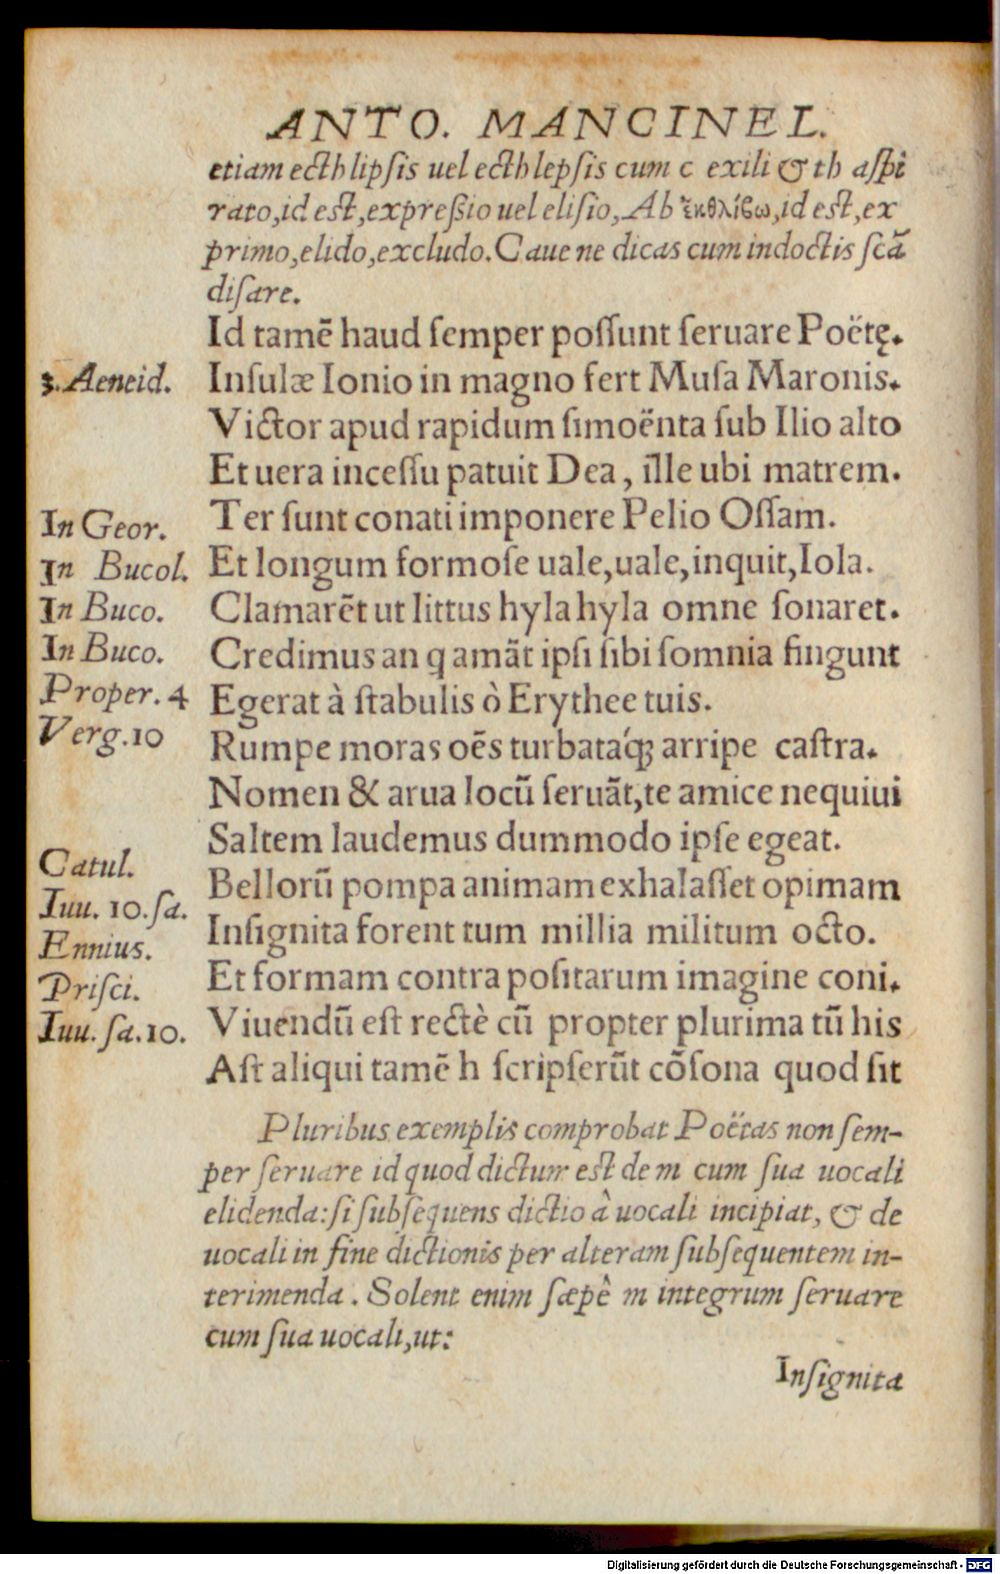 ANTO. MANCINEL.
etiam ecthlipſis uel ecthlepſis cum c exili & th aſpi
rato, id est, expreſsio uel eliſio, Ab ἐκθλίβω, id est, ex
primo, elido, excludo. Caue ne dicas cum indoctis ſcã
diſare.
Id tamē haud ſemper poſſunt ſeruare Poëtę.
3. Aeneid. Inſulæ Ionio in magno fert Muſa Maronis.
Victor apud rapidum ſimoënta ſub Ilio alto
Et uera inceſſu patuit Dea, ille ubi matrem.
In Geor. Ter ſunt conati imponere Pelio Oſſam.
In Bucol. Et longum formoſe uale, uale, inquit, Iola.
In Buco. Clamarēt ut littus hyla hyla omne ſonaret.
In Buco. Credimus an q amãt ipſi ſibi ſomnia fingunt
Proper. 4 Egerat à ſtabulis ò Erythee tuis.
Verg. 10 Rumpe moras oēs turbataq́; arripe caſtra.
Nomen & arua locũ ſeruãt, te amice nequiui
Saltem laudemus dummodo ipſe egeat.
Catul. Bellorũ pompa animam exhalaſſet opimam
Iuu. 10. ſa. Inſignita forent tum millia militum octo.
Ennius. Et formam contra poſitarum imagine coni.
Priſci. Viuendũ eſt rectè cũ propter plurima tũ his
Iuu. ſa. 10. Aſt aliqui tamē h ſcripſerũt cõſona quod ſit
Pluribus exemplis comprobat Poëtas non ſem-
per ſeruare id quod dictum est de m cum ſua uocali
elidenda: ſi ſubſequens dictio à uocali incipiat, & de
uocali in fine dictionis per alteram ſubſequentem in-
terimenda. Solent enim ſæpè m integrum ſeruare
cum ſua uocali, ut:
Inſignita
Digitalisierung gefördert durch die Deutsche Forschungsgemeinschaft - DFG